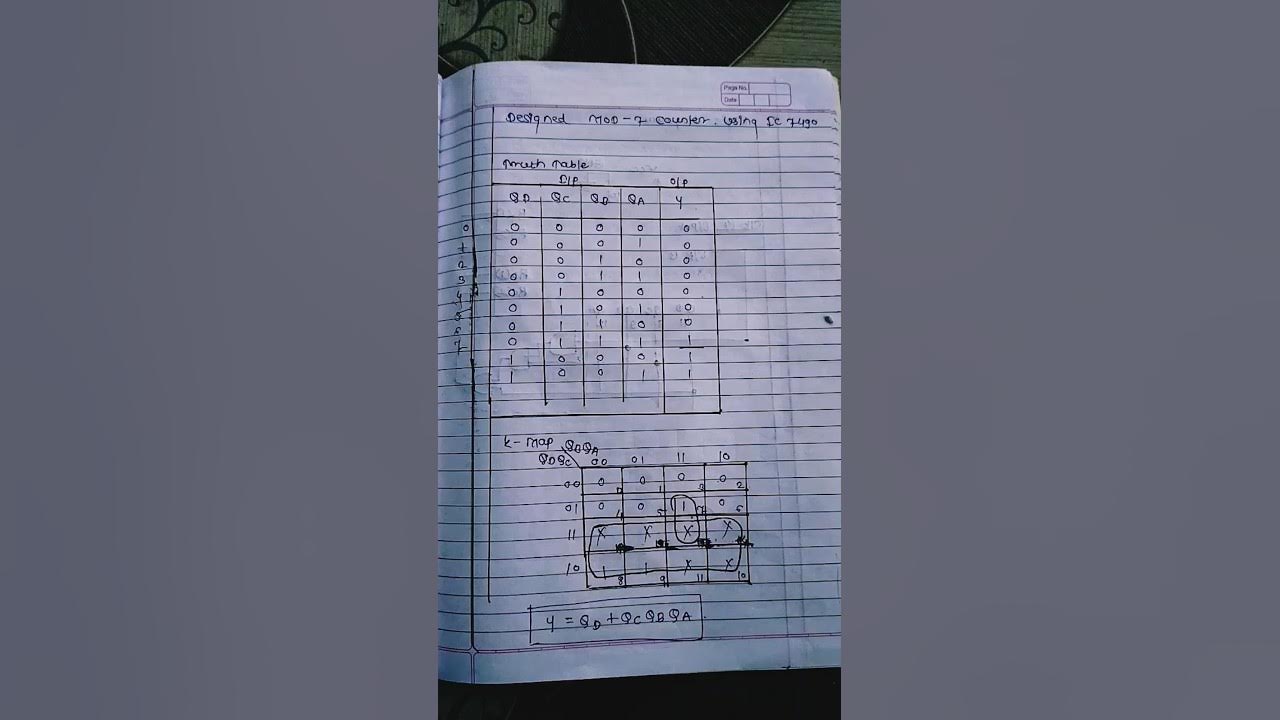 Page No.
Date
Designed MOD-7 counter. Using IC 7490
Truth Table
I/P O/P
QD QC QD QA Y
0 0 0 0 0 0
1 0 0 0 1 0
2 0 0 1 0 0
3 0 0 1 1 0
4 0 1 0 0 0
5 0 1 0 1 0
6 0 1 1 0 0
7 0 1 1 1 1
1 0 0 0 1
1 0 0 1 1
K-Map QBQA
QDQC 00 01 11 10
00 0 0 0 1 0 3 0 2
01 0 4 0 5 1 7 0 6
11 X X X X
10 1 8 1 9 X 11 X 10
Y = QD + QC QB QA